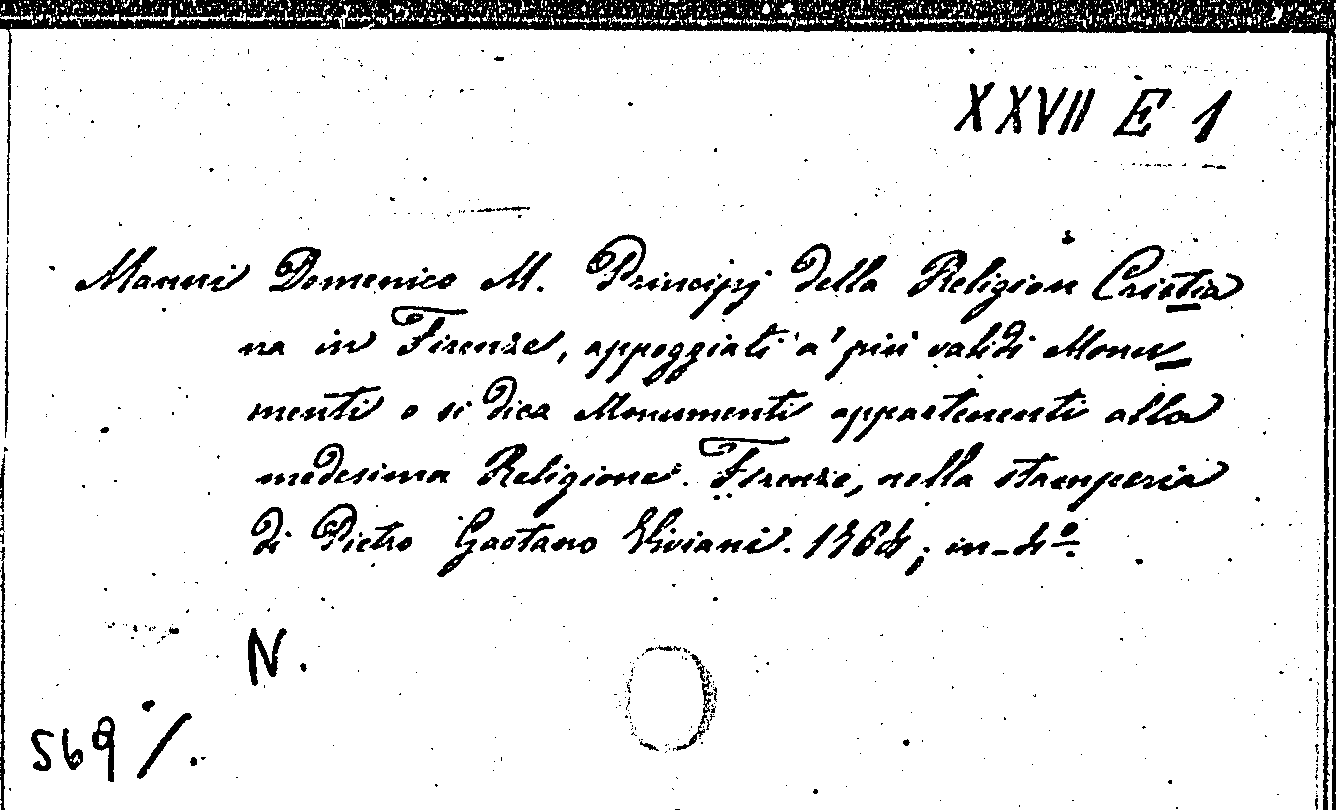 XXVII E 1
Manni Domenico M. Principj della Religion Cristia
na in Firenze, appoggiati a' più validi Monu
menti o si dica Monumenti appartenenti alla
medesima Religione. Firenze, nella stamperia
di Pietro Gaetano Viviani. 1764; in-4º.
N.
569 /.